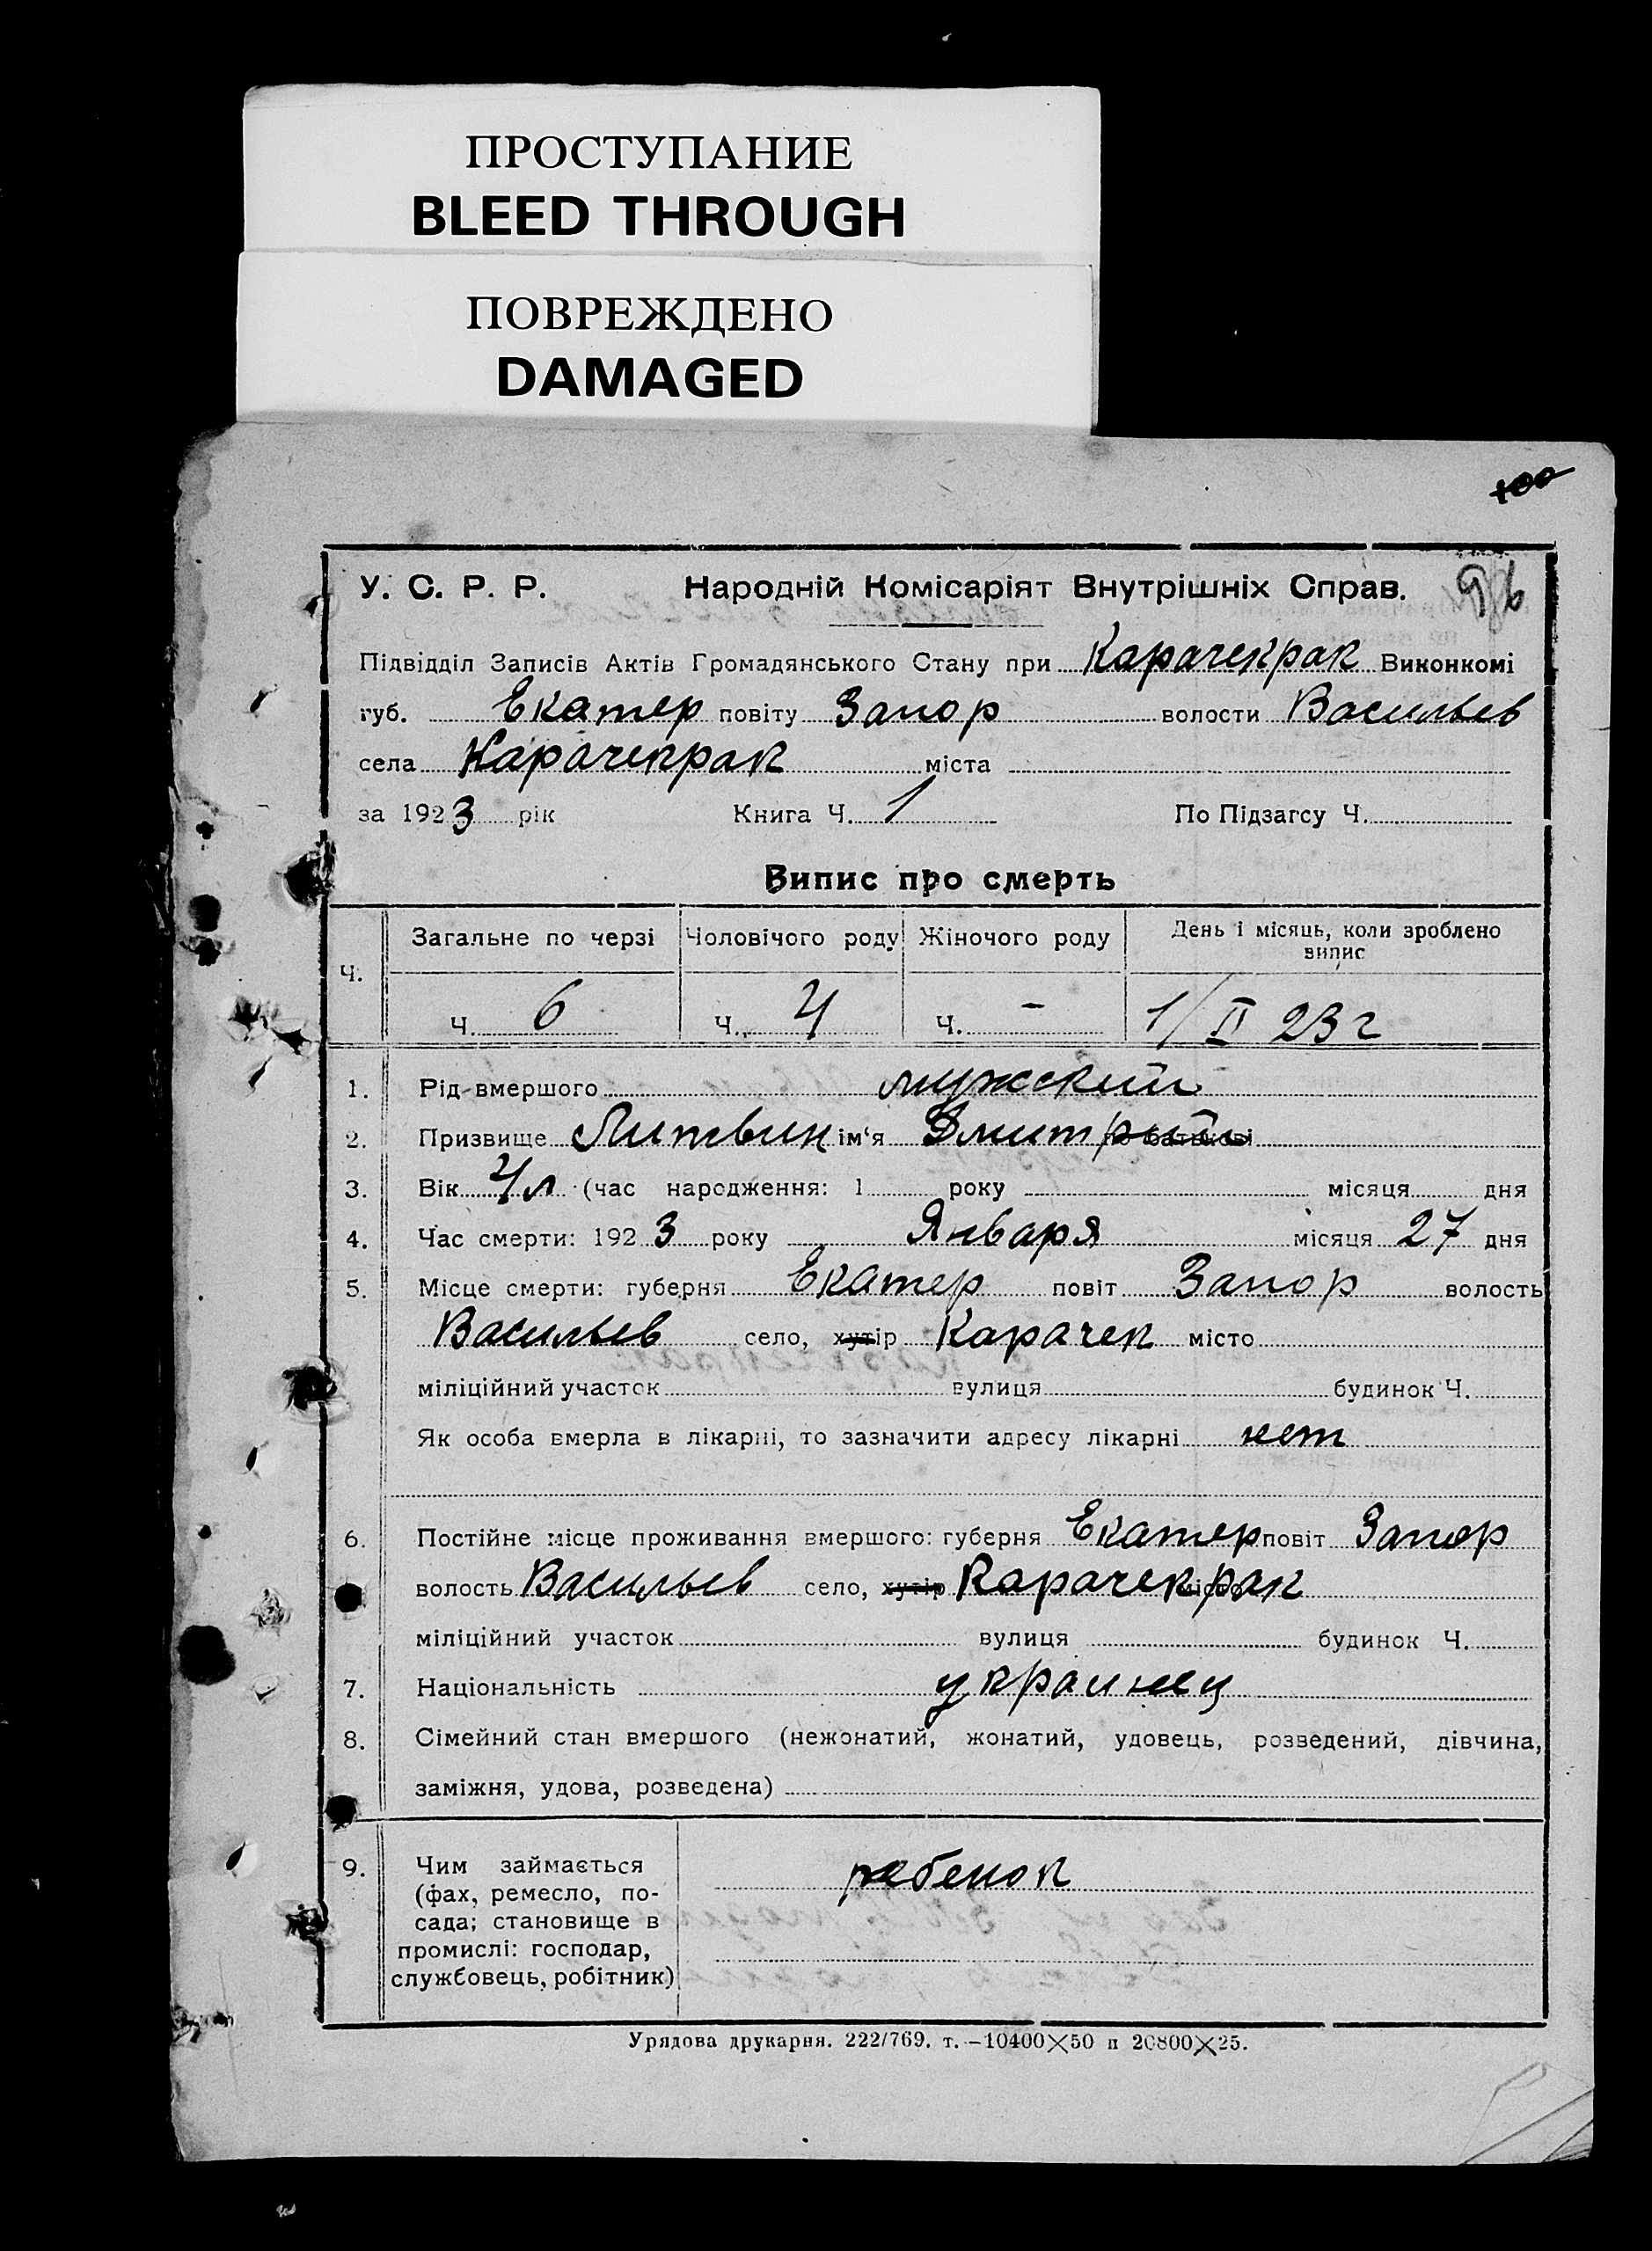 ПРОСТУПАНИЕ
BLEED THROUGH
ПОВРЕЖДЕНО
DAMAGED
100
96
У. С. Р. Р. Народній Комісаріят Внутрішніх Справ.
Підвідділ Записів Актів Громадянського Стану при Карачекрак Виконкомі
губ. Екатер повіту Запор волости Васильев
села Карачекрак міста
за 1923 рік Книга Ч. 1 По Підзагсу Ч.
Випис про смерть
Ч. Загальне по черзі Чоловічого роду Жіночого роду День і місяць, коли зроблено
випис
Ч. 6 Ч. 4 Ч. - 1/II 23 г
1. Рід вмершого мужский
2. Призвище Литвин ім'я Дмитрий по батькові
3. Вік 4 л (час народження: 1 року місяця дня
4. Час смерти: 1923 року Января місяця 27 дня
5. Місце смерти: губерня Екатер повіт Запор волость
Васильев село, хутір Карачек місто
міліційний участок вулиця будинок Ч.
Як особа вмерла в лікарні, то зазначити адресу лікарні нет
6. Постійне місце проживання вмершого: губерня Екатер повіт Запор
волость Васильев село, хутір Карачекрак місто
міліційний участок вулиця будинок Ч.
7. Національність украинец
8. Сімейний стан вмершого (нежонатий, жонатий, удовець, розведений, дівчина,
заміжня, удова, розведена)
9. Чим займається ребенок
(фах, ремесло, по-
сада; становище в
промислі: господар,
службовець, робітник)
Урядова друкарня. 222/769. т. —10400×50 п 20800×25.